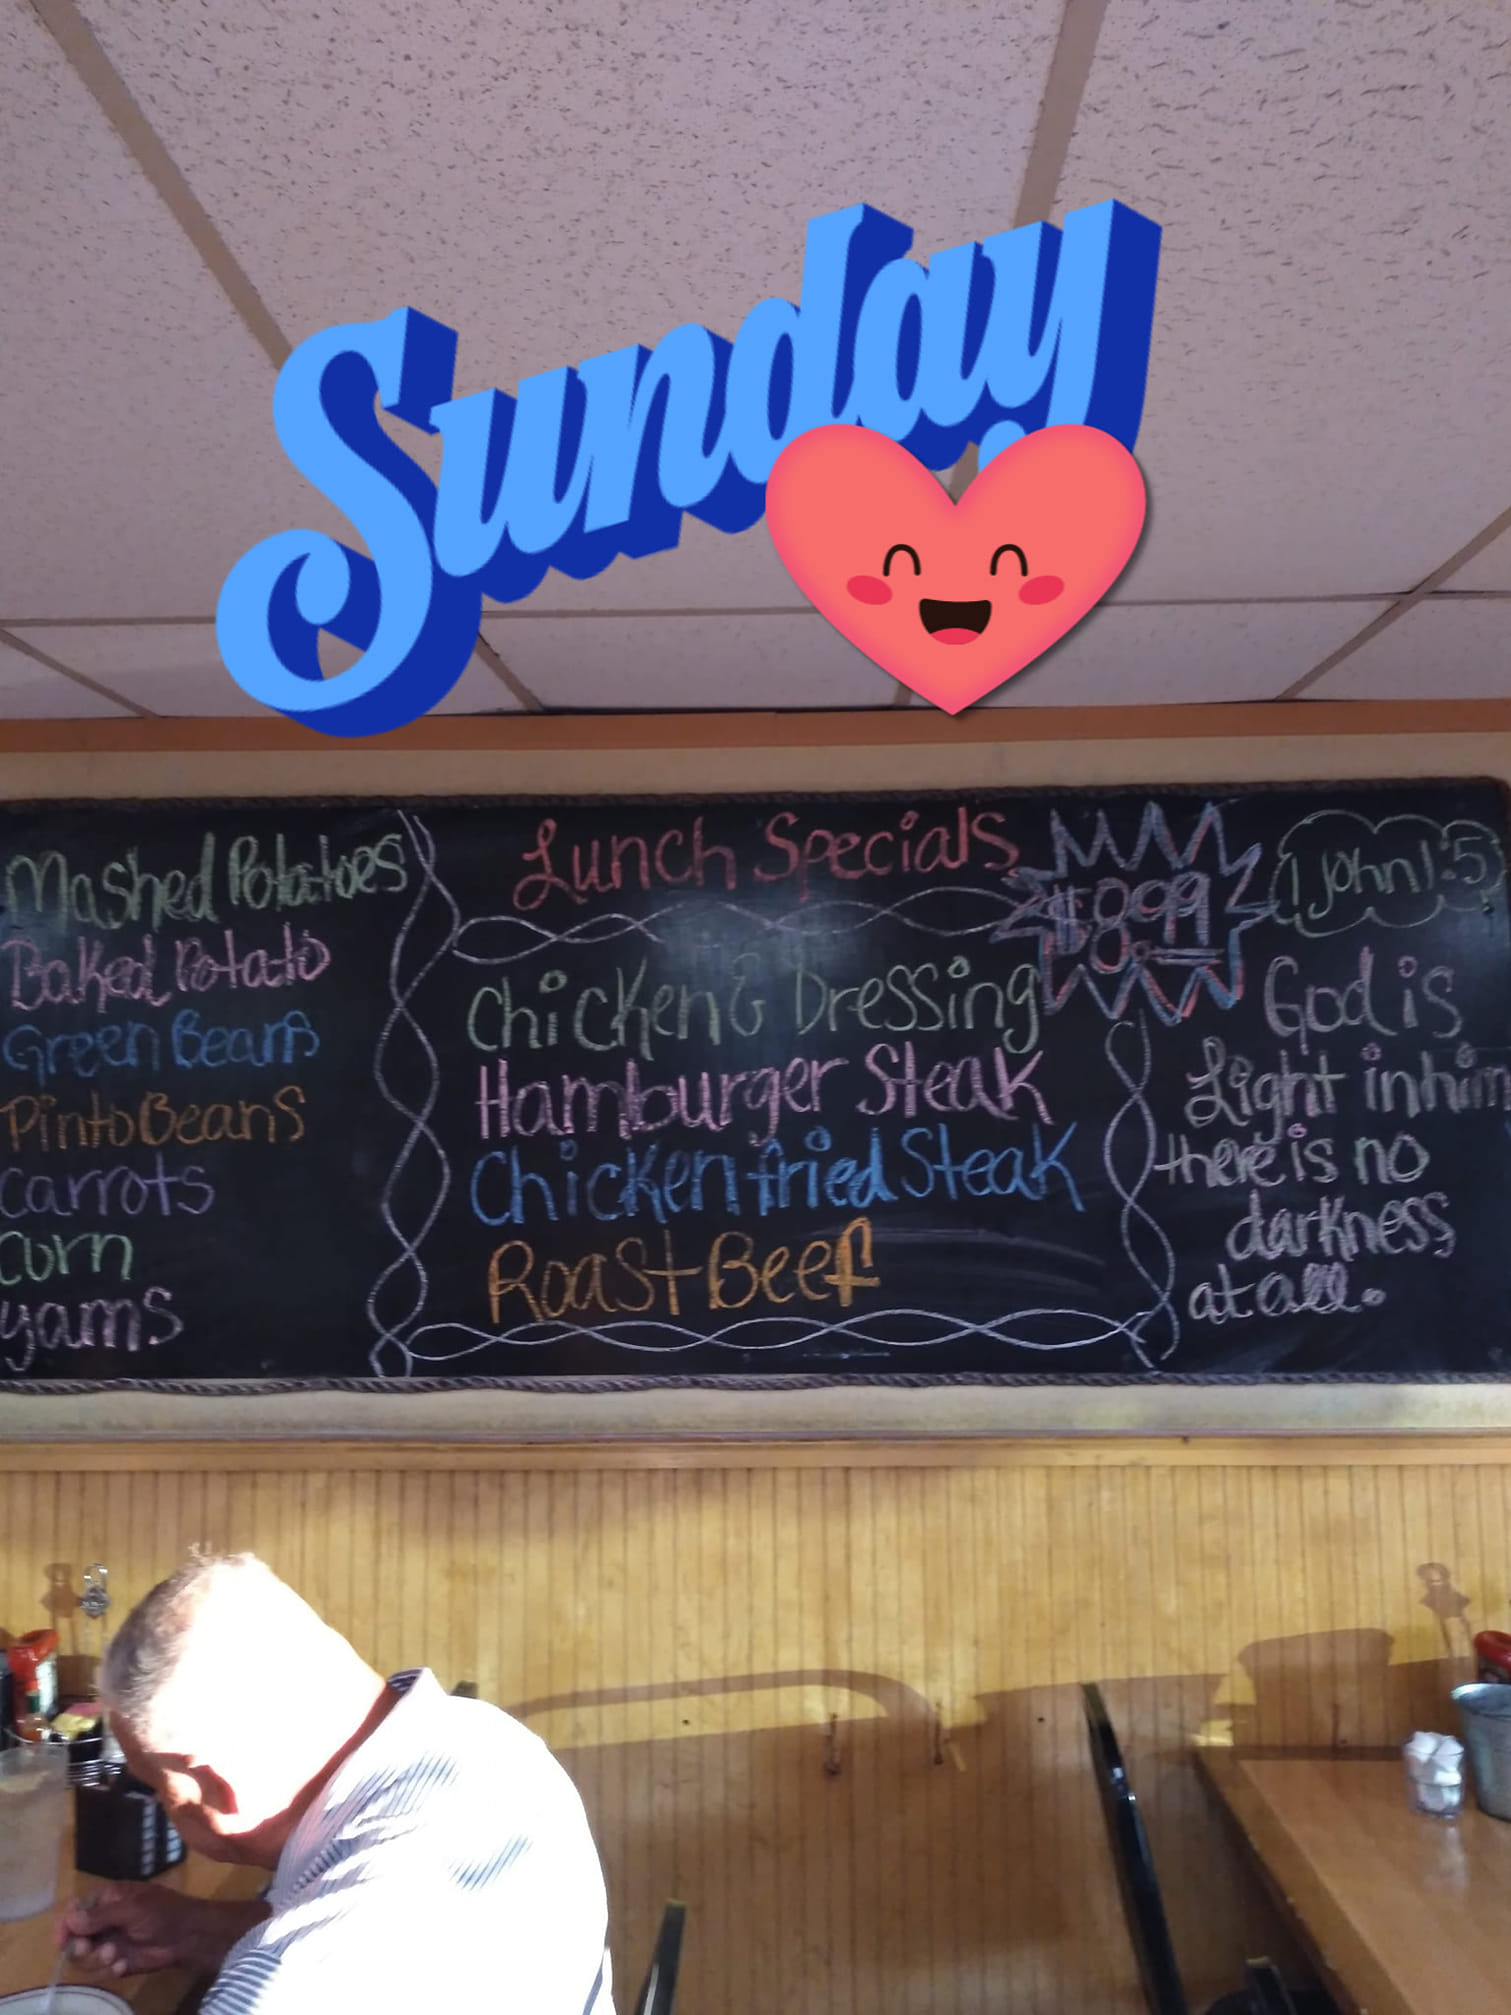 Sunday
Mashed Potatoes
Baked Potato
Green Beans
Pinto Beans
Carrots
Corn
yams
Lunch Specials
$8.99
Chicken & Dressing
Hamburger Steak
Chicken fried Steak
Roast Beef
1 John 1:5
God is
Light in him
there is no
darkness
at all.